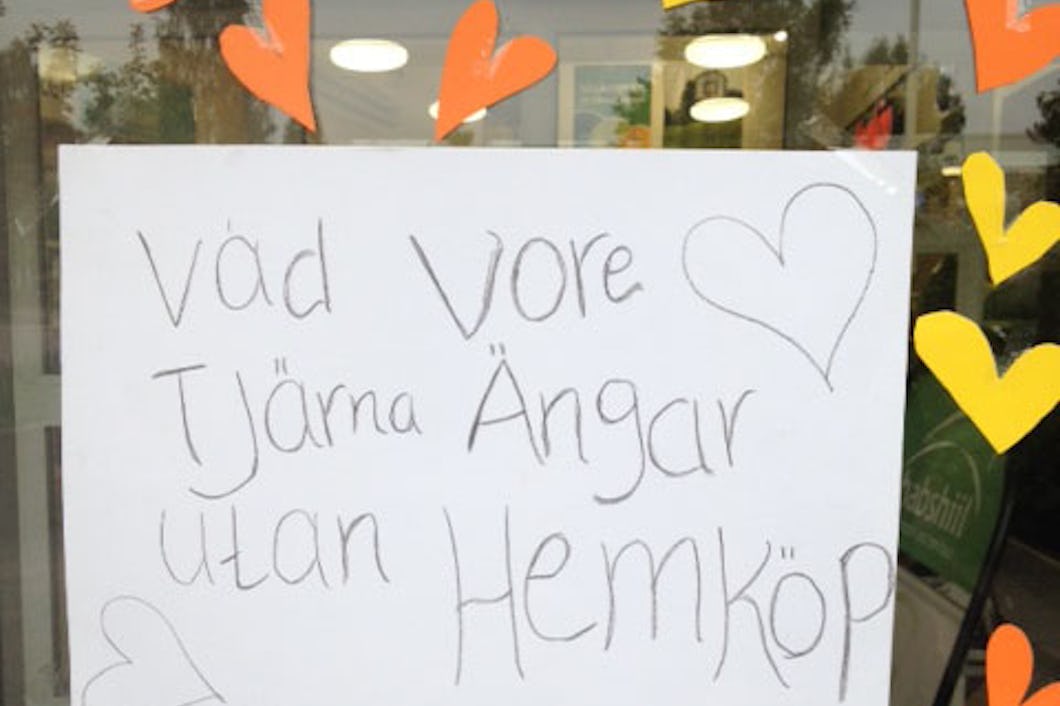 Vad Vore
Tjärna Ängar
utan Hemköp